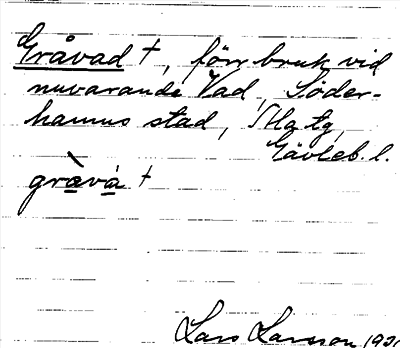 Gråvad †, förr bruk vid
nuvarande Vad, Söder-
hamns stad, Ala tg,
Gävleb. l.
gràvá †
Lars Larsson